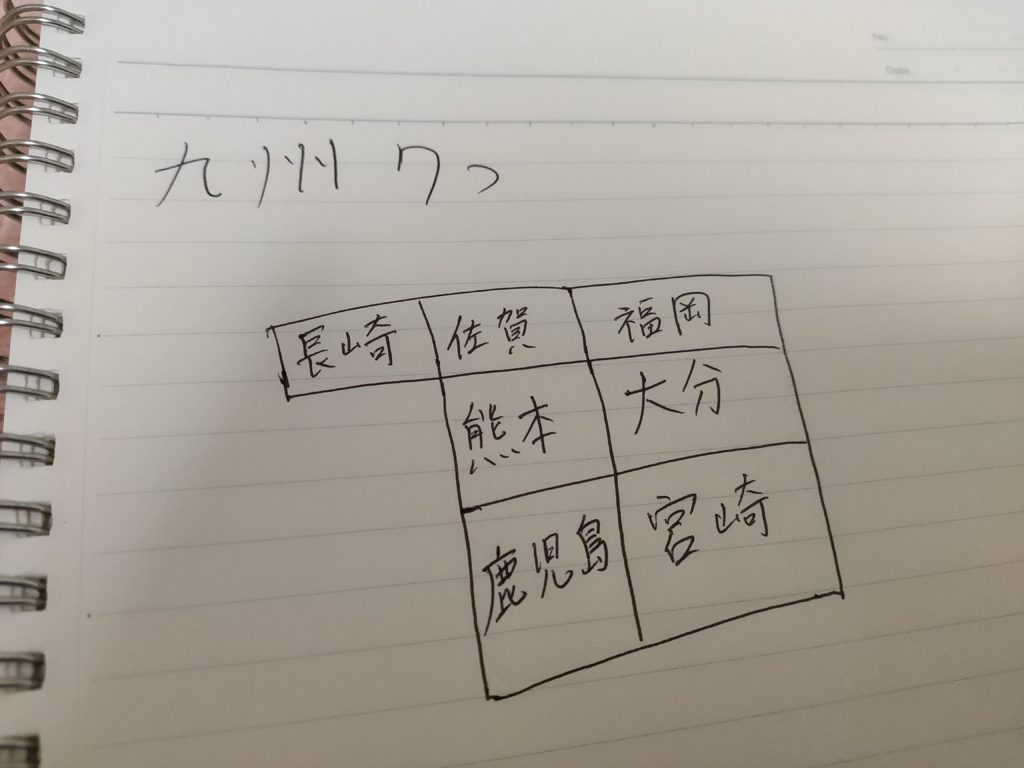 No.
Date
九州 7つ
長崎 佐賀 福岡
熊本 大分
鹿児島 宮崎